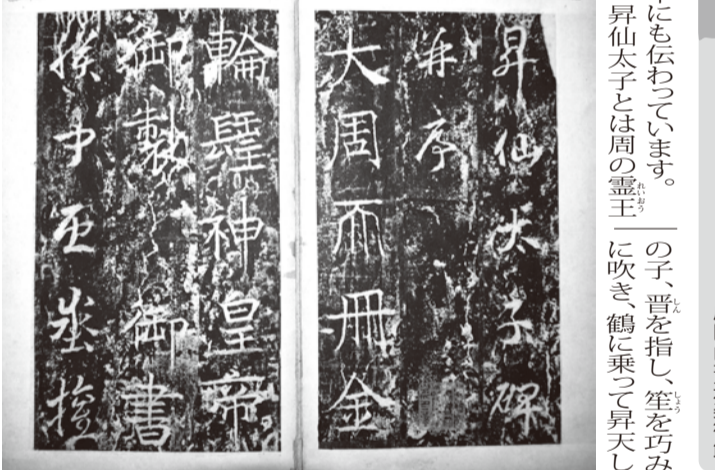 にも伝わっています。
昇仙太子とは周の霊王
れいおう
の子、晋を指し、笙を巧み
しん
しょう
に吹き、鶴に乗って昇天し
昇仙太子碑
并序
大周𠀑冊金
輪𨲢神皇帝
御製御書